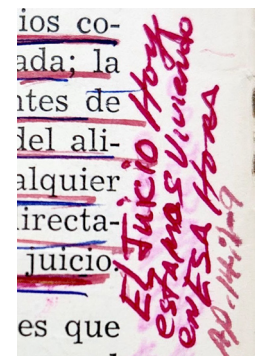 ios co-
ada; la
ntes de
del ali-
alquier
irecta-
juicio.
es que
El Juicio Hoy
estamos Viviendo
en ESA Hora